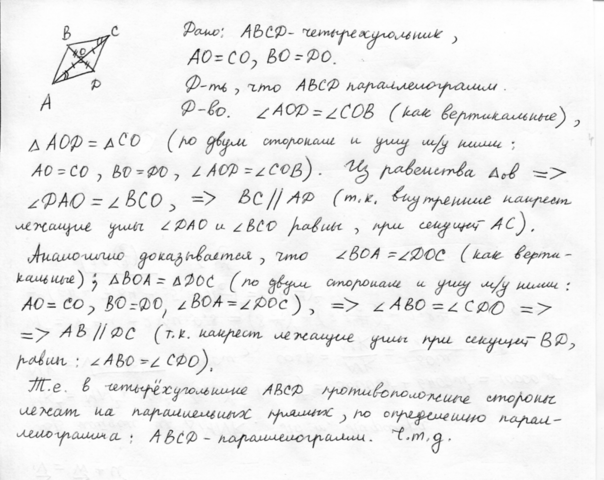 B C
O
A D
Дано: ABCD - четырехугольник,
AO = CO, BO = DO.
Д-ть, что ABCD параллелограмм.
Д-во. ∠AOD = ∠COB (как вертикальные),
△AOD = △CO (по двум сторонам и углу м/у ними:
AO = CO, BO = DO, ∠AOD = ∠COB). Из равенства △ов =>
∠DAO = ∠BCO, => BC // AD (т.к. внутренние накрест
лежащие углы ∠DAO и ∠BCO равны, при секущей AC).
Аналогично доказывается, что ∠BOA = ∠DOC (как верти-
кальные); △BOA = △DOC (по двум сторонам и углу м/у ними:
AO = CO, BO = DO, ∠BOA = ∠DOC), => ∠ABO = ∠CDO =>
=> AB // DC (т.к. накрест лежащие углы при секущей BD,
равны: ∠ABO = ∠CDO).
Т.е. в четырёхугольнике ABCD противоположные стороны
лежат на параллельных прямых, по определению парал-
лелограмма: ABCD - параллелограмм. Ч.т.д.